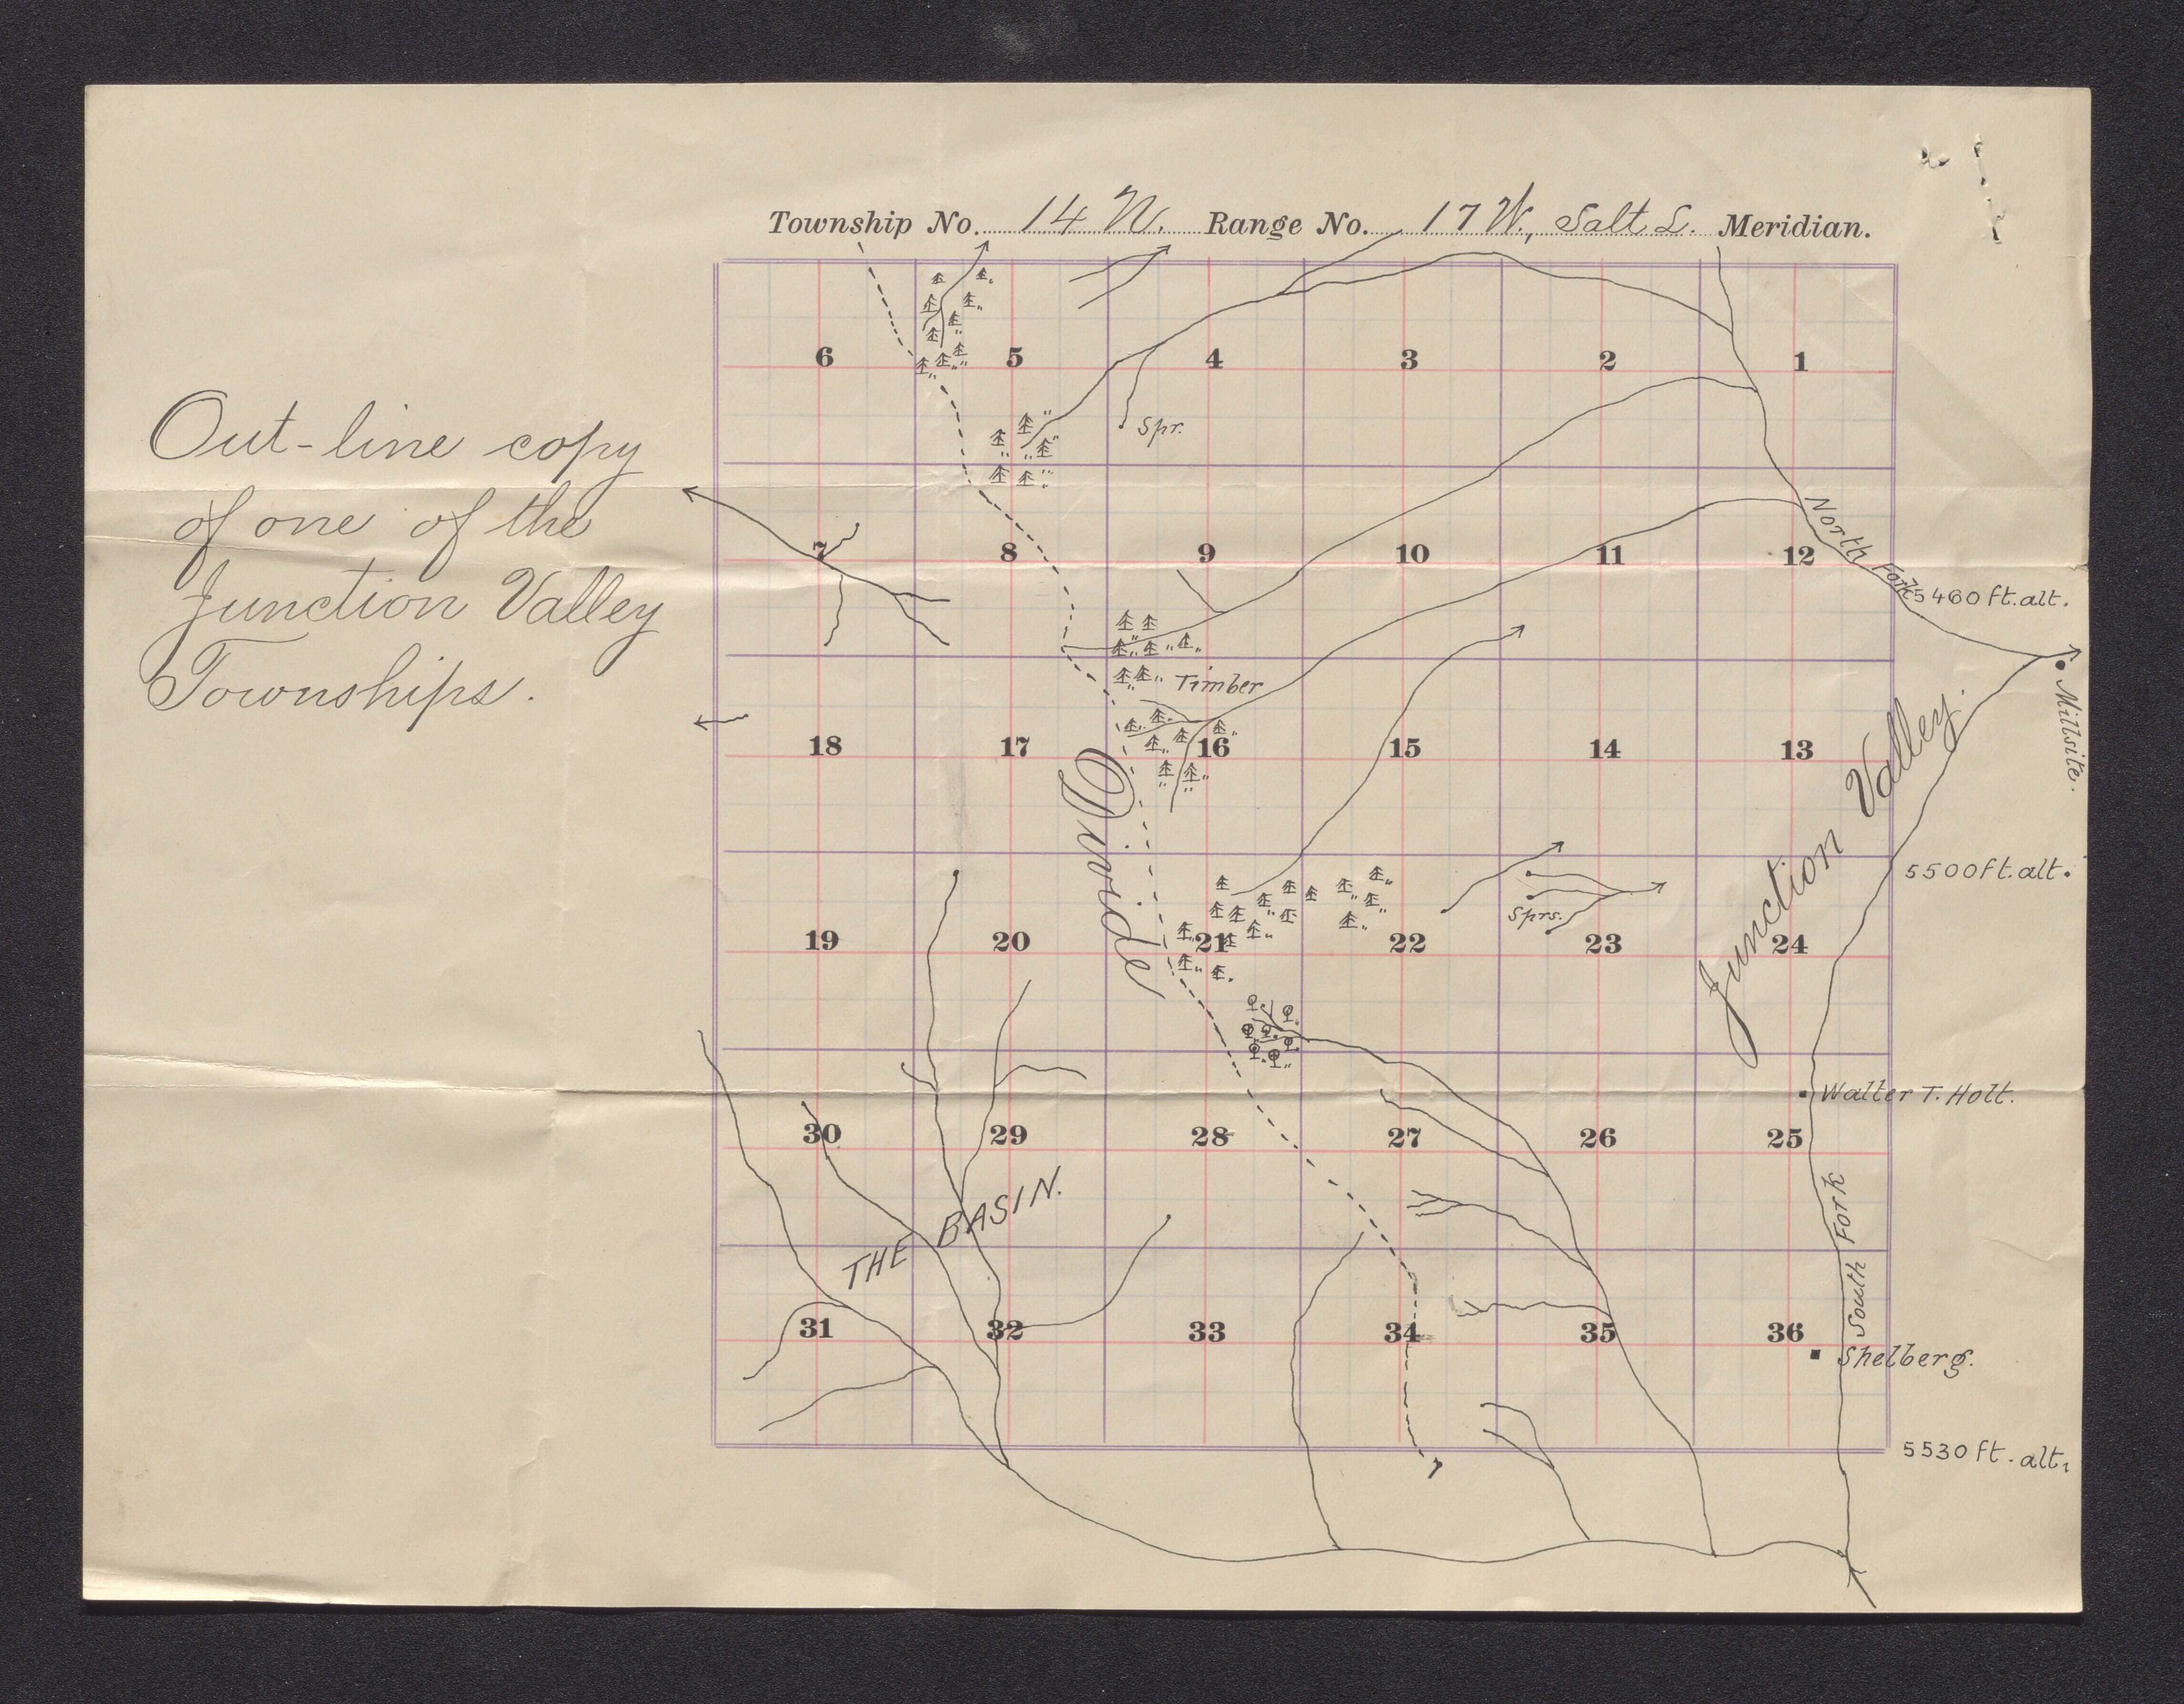 Township No. 14 N. Range No. 17 W., Salt L. Meridian.
Out-line copy
of one of the
Junction Valley
Townships.
6 5 4 3 2 1
Spr.
7 8 9 10 11 12
North Fork
5460 ft. alt.
Timber
Millsite.
18 17 16 15 14 13
Divide
Junction Valley.
5500 ft. alt.
Sprs.
19 20 21 22 23 24
Walter T. Holt.
30 29 28 27 26 25
THE BASIN.
South Fork
31 32 33 34 35 36
Shelberg.
5530 ft. alt.